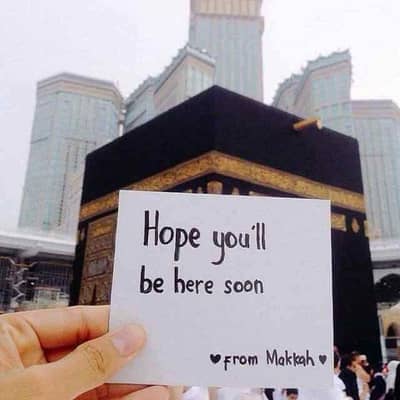 Hope you'll
be here soon
♥from Makkah♥